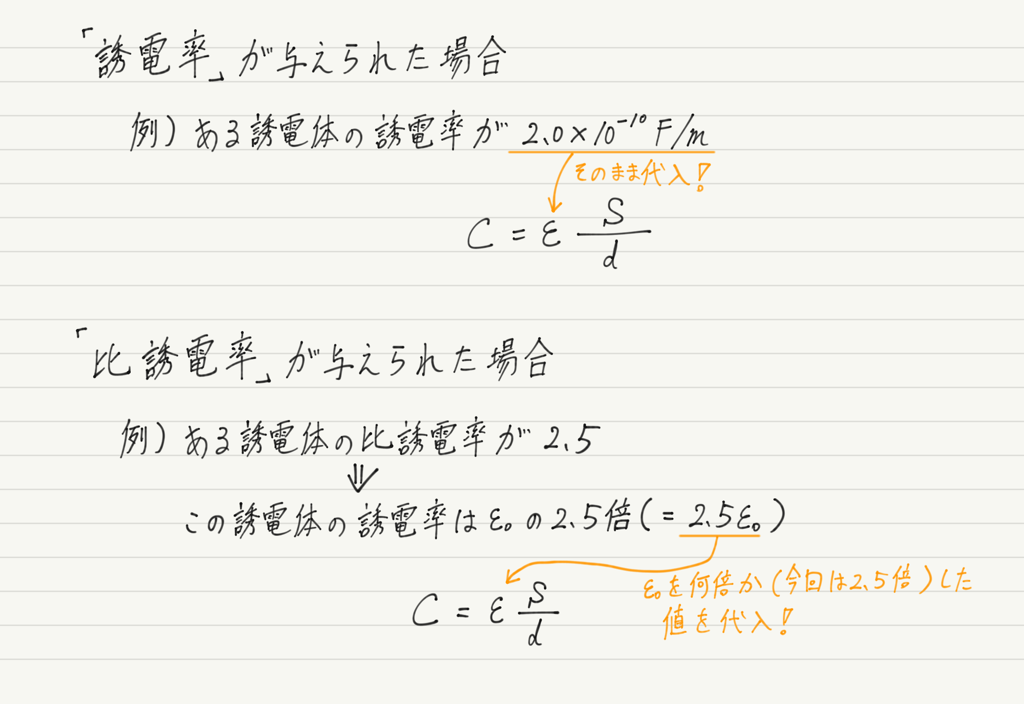 「誘電率」が与えられた場合
例）ある誘電体の誘電率が 2.0×10⁻¹⁰ F/m
そのまま代入！
C = ε S/d
「比誘電率」が与えられた場合
例）ある誘電体の比誘電率が 2.5
⇓
この誘電体の誘電率は ε₀ の 2.5倍 (= 2.5ε₀)
ε₀を何倍か（今回は2.5倍）した
値を代入！
C = ε S/d